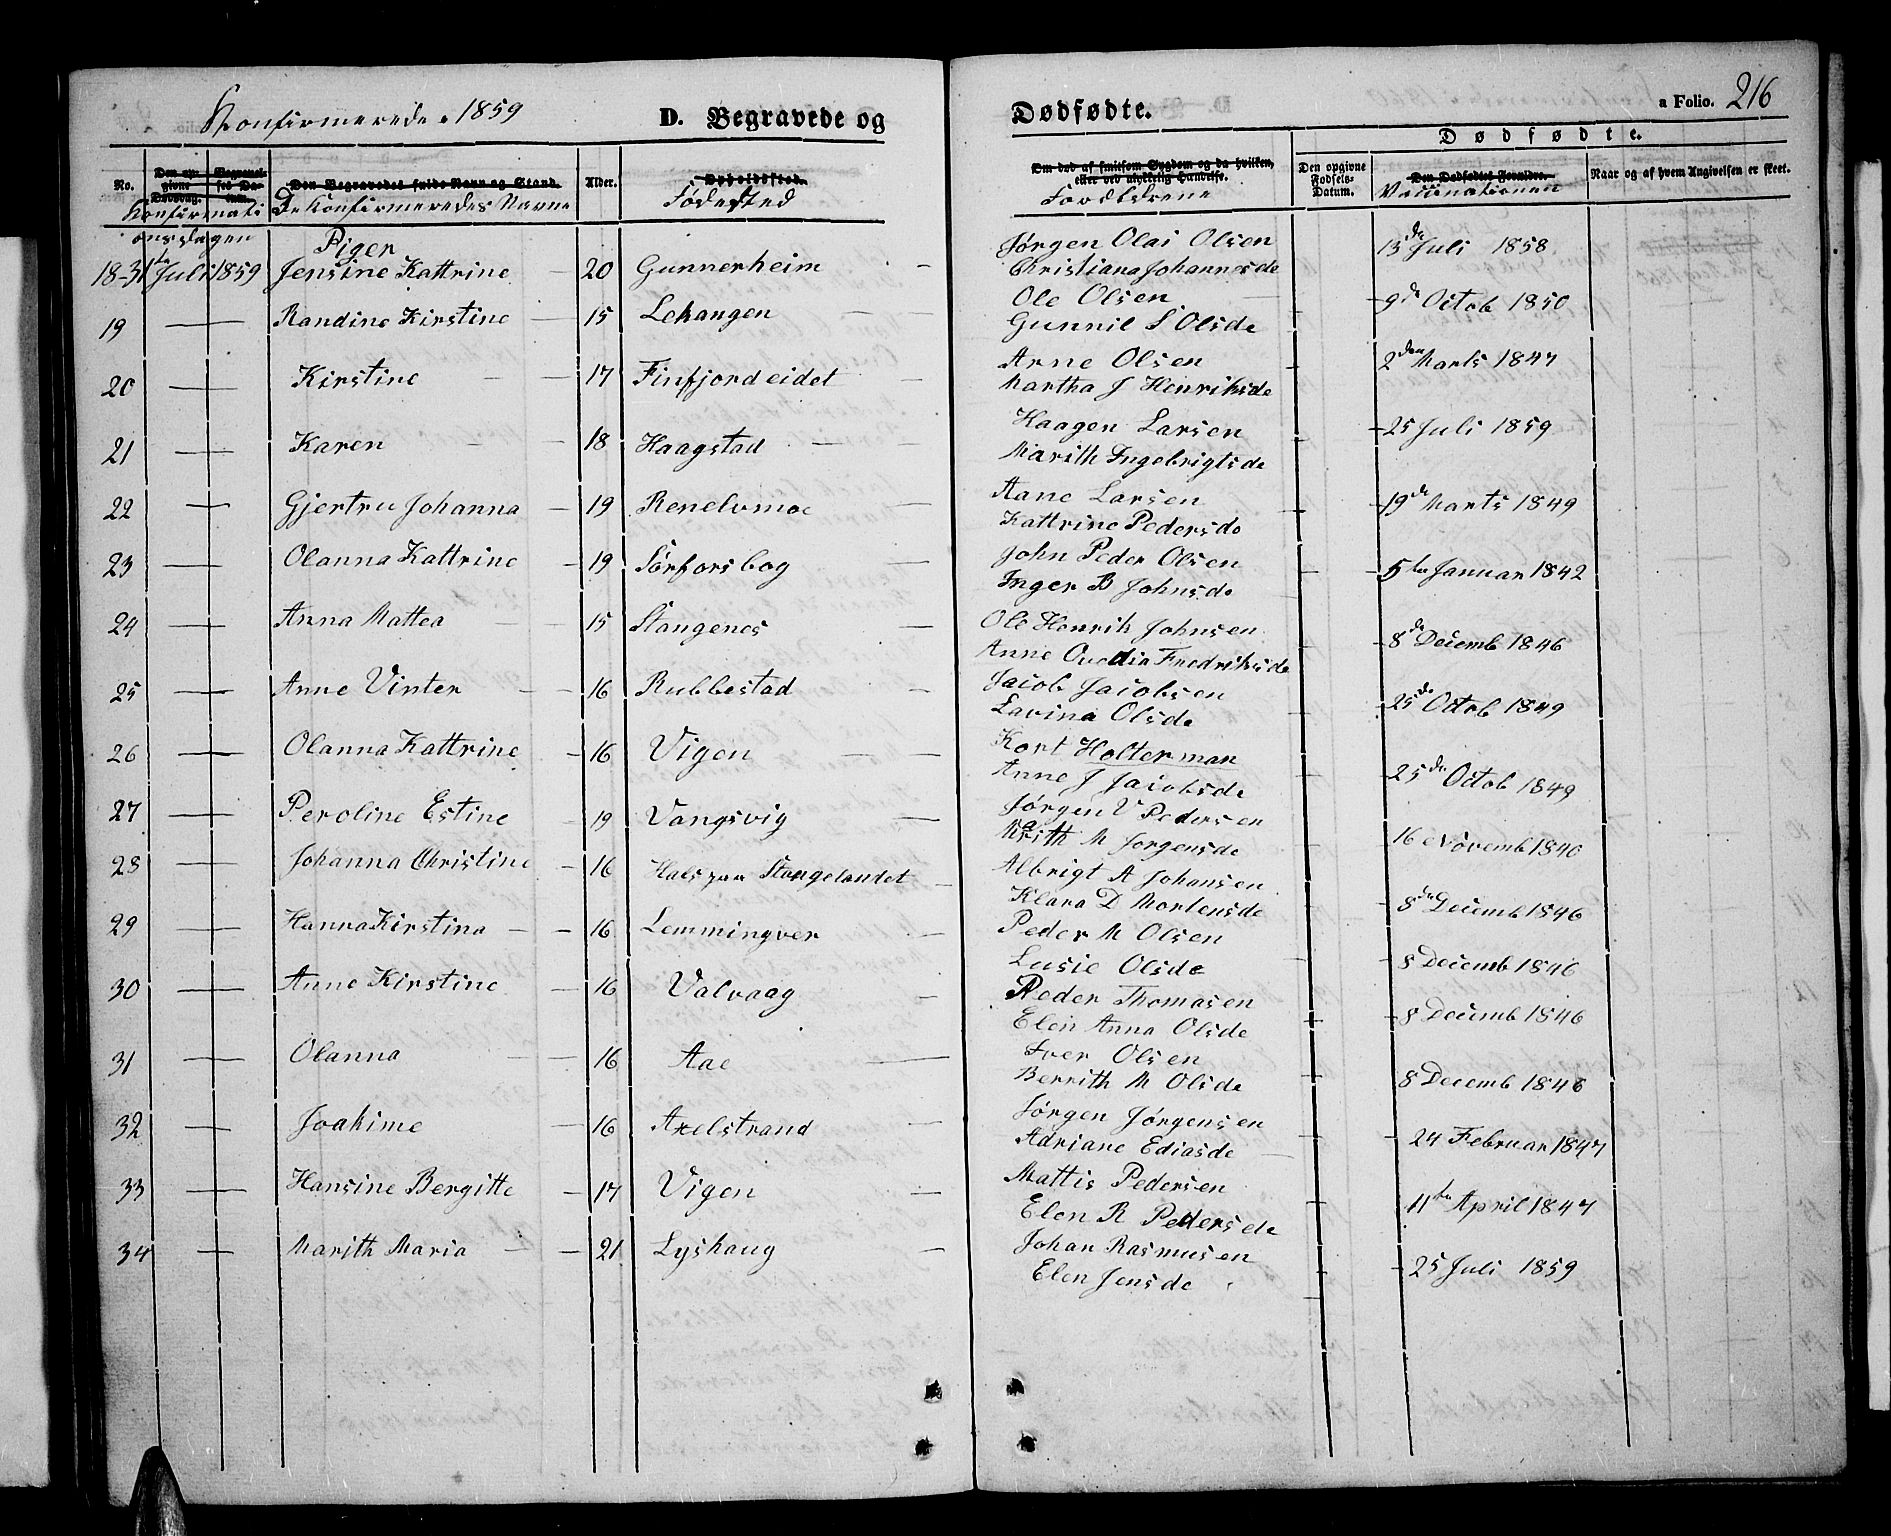 Konfirmerede 1859 D. Begravede og Dødfødte. a Folio. 216
No. Den opgivne Dødsdag. Begravelses Datum. Den Begravedes fulde Navn og Stand. Alder. Opholdssted. Om død af smitsom Sygdom og da hvilken, eller ved ulykkelig Hændelse. Den opgivne Fødsels-Datum. Dødfødte. Den Dødfødtes Forældre. Naar og af hvem Angivelsen er skeet.
Konfirmationsdagen De Konfirmeredes Navne Fødested Forældrene Vaccinationen
Piger
18 - 31te Juli 1859 Jensine Kattrine — 20 Gunnerheim — Jørgen Olai Olsen 13de Juli 1858
Christiana Johannesde
19 — — Randine Kirstine — 15 Lekangen — Ole Olsen — 9de Octob 1850
Gunnil S Olsde
20 — — Kirstine — 17 Finfjordeidet — Arne Olsen 2den Marts 1847
Martha J Henriksde
21 — — Karen — 18 Haagstad — Haagen Larsen — 25 Juli 1859
Marith Ingebrigtsde
22 — — Gjertru Johanna — 19 Renelvmoe — Aane Larsen — 19de Marts 1849
Kattrine Pedersde
23 — — Olanna Kattrine — 19 Sørforsbog John Peder Olsen — 5te Januar 1842
Inger B Johnsde
24 — — Anna Mattea 15 Stangenes — Ole Henrik Johnsen — 8de Decemb 1846
Anne Ovedia Fredriksde
25 — — Anne Vinter — 16 Rubbestad — Jacob Jacobsen 25de Octob 1849
Lavina Olsde
26 — — Olanna Kattrine — 16 Vigen — Kort Holterman — 25de Octob 1849
Anne J Jacobsde
27 — — Peroline Estine 19 Vangsvig — Jørgen V Pedersen 16 Novemb 1840
Marith M Jorgensde
28 — — Johanna Christine 16 Hals paa Stangelandet — Albrigt A Johansen — 8de Decemb 1846
Klara D Mortensde
29 — — Hanna Kirstina — 16 Lemmingver — Peder M Olsen — 8 Decemb 1846
Lusie Olsde
30 — — Anne Kirstine — 16 Valvaag — Peder Thomasen — 8 Decemb 1846
Elen Anna Olsde
31 — — Olanna — 16 Aae — Iver Olsen 8 Decemb 1846
Berrith M Olsde
32 — — Joakime — 16 Axelstrand — Jørgen Jørgensen — 24 Februar 1847
Adriane Ediasde
33 — — Hansine Bergitte — 17 Vigen — Mattis Pedersen — 11te April 1847
Elen R Pedersde
34 — Marith Maria — 21 Lyshaug — Johan Rasmusen — 25 Juli 1859
Elen Jensde